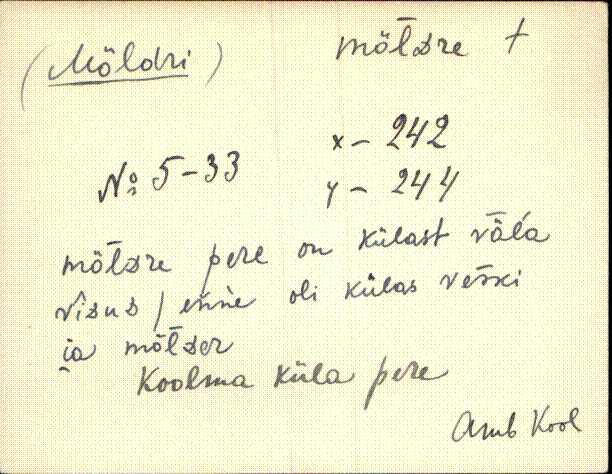 (Möldri) mölᴅre †
x – 242
No 5-33
y – 244
mölᴅre pere on külast väĺ́a
viᴢuᴅ / enne oli külas veski
ja mölᴅer
Koolma küla pere
Amb Kool